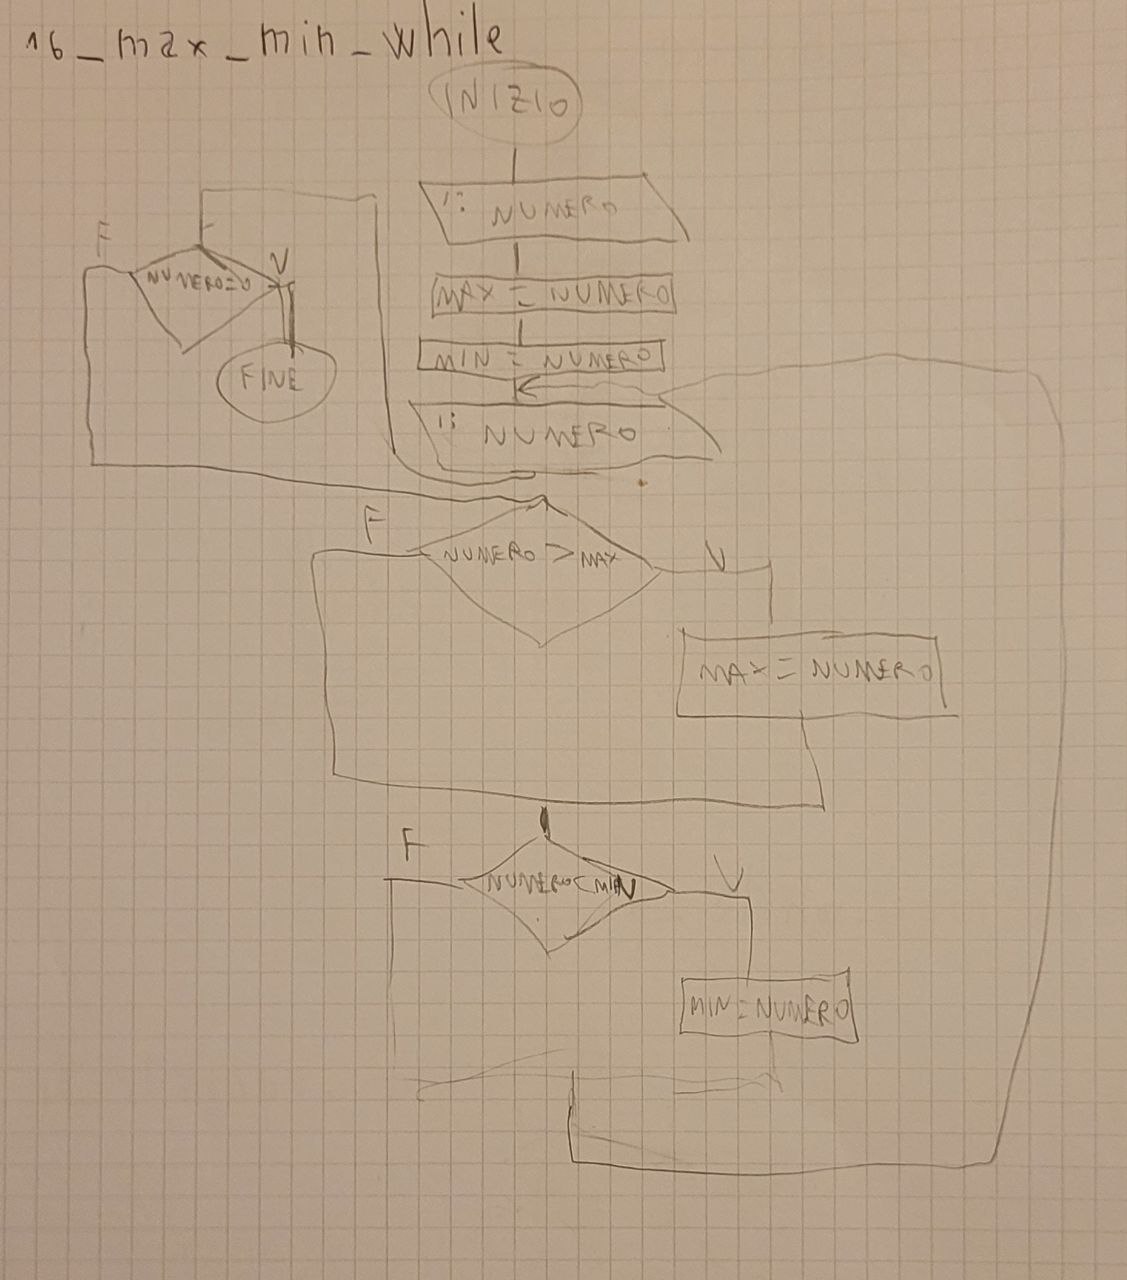 16_max_min_while
INIZIO
I: NUMERO
MAX = NUMERO
MIN = NUMERO
I: NUMERO
F
NUMERO=0
V
FINE
F
NUMERO > MAX
V
MAX = NUMERO
F
NUMERO < MIN
V
MIN = NUMERO